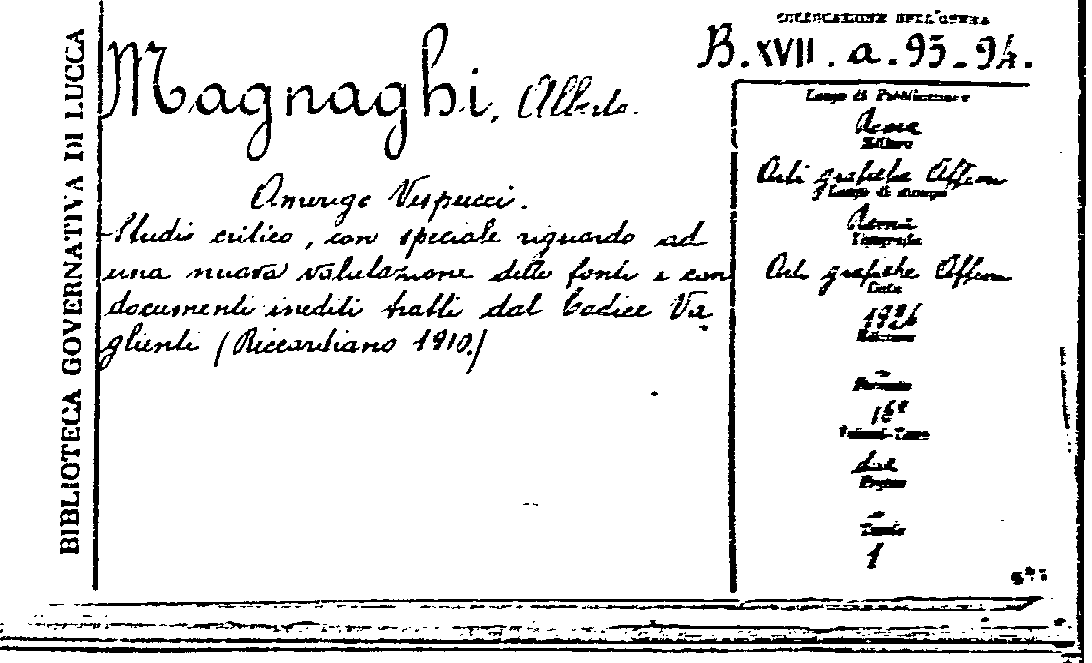 BIBLIOTECA GOVERNATIVA DI LUCCA
COLLOCAZIONE DELL'OPERA
B. XVII. a. 93-94.
Magnaghi, Alberto.
Amerigo Vespucci.
Studio critico, con speciale riguardo ad
una nuova valutazione delle fonti e con
documenti inediti tratti dal Codice Va
glienti (Riccardiano 1910.)
Luogo di Pubblicazione
Roma
Editore
Arti grafiche
Luogo di stampa
Roma
Tipografia
Arti grafiche
Data
1924
Edizione
Formato
16º
Volumi-Tomo
due
Pagine
Tavole
1